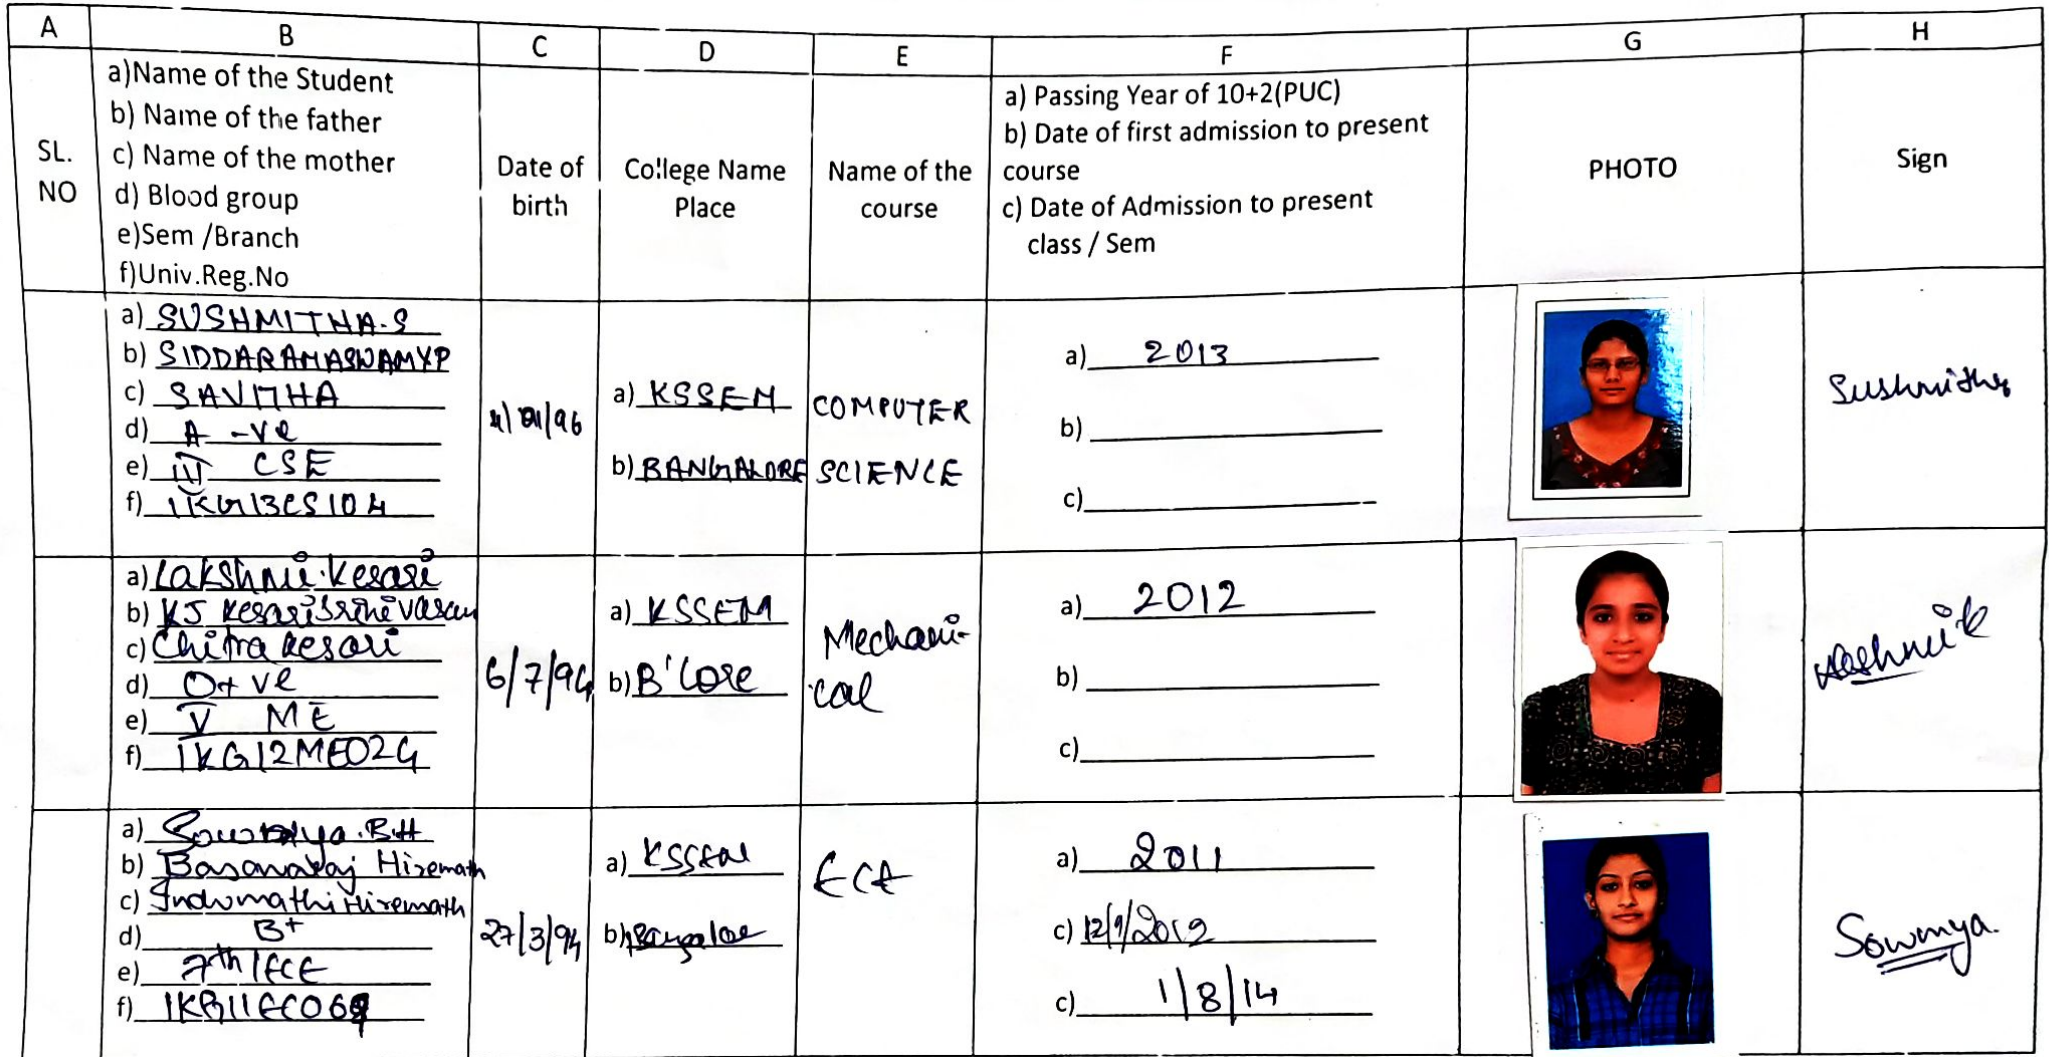 A B C D E F G H
SL. NO
a)Name of the Student
b) Name of the father
c) Name of the mother
d) Blood group
e)Sem /Branch
f)Univ.Reg.No
Date of birth
College Name Place
Name of the course
a) Passing Year of 10+2(PUC)
b) Date of first admission to present course
c) Date of Admission to present class / Sem
PHOTO
Sign
a) SUSHMITHA.S
b) SIDDARAMASWAMY P
c) SAVITHA
d) A -ve
e) III CSE
f) 1KG13CS104
/96
a) KSSEM
b) BANGALORE
COMPUTER
SCIENCE
a) 2013
b)
c)
Sushmitha
a) Lakshmi.Kesari
b) KJ Kesari Srinivasan
c) Chitra Kesari
d) O+ ve
e) V ME
f) 1KG12ME024
6/7/94
a) KSSEM
b) B'lore
Mechani-
cal
a) 2012
b)
c)
a) Sowmya.B.H
b) Basavaraj Hiremath
c) Indumathi Hiremath
d) B+
e) 7th / ECE
f) 1KG11EC069
27/3/94
a) KSSEM
b) Bangalore
ECE
a) 2011
c) 12/9/2012
c) 1/8/14
Sowmya.